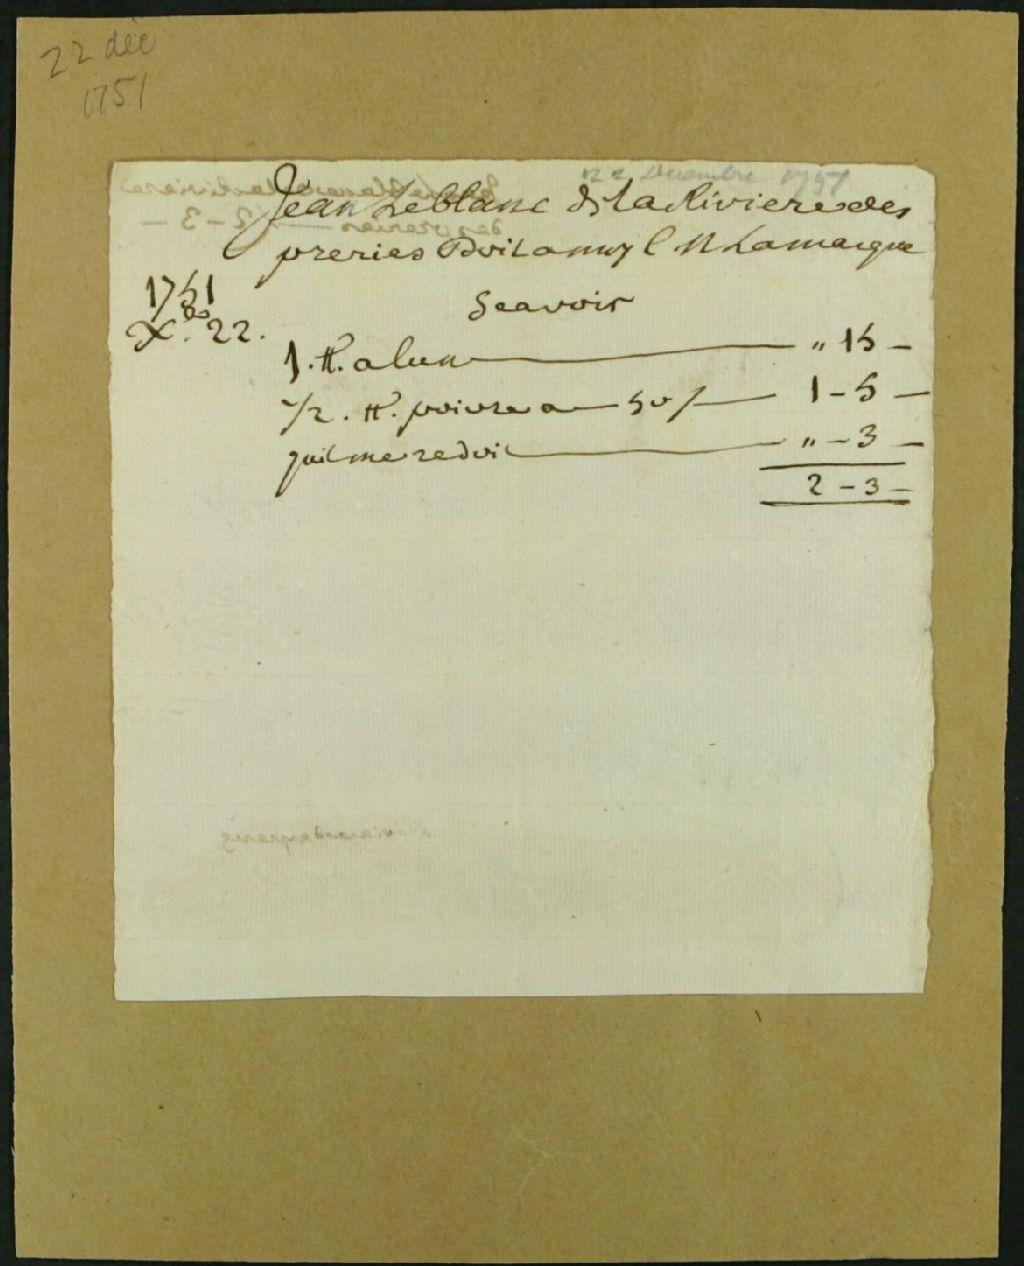 22 déc
1751
22 Décembre 1751
Jean Leblanc de la Riviere des
preries Doit a moy C. N Lamarque
Scavoir
1751
Xbre 22.
1. tt. alun „ 15 –
1/2. tt. poivre a 50 s/ 1 – 5 –
quil me redoit „ – 3 –
2 – 3 –